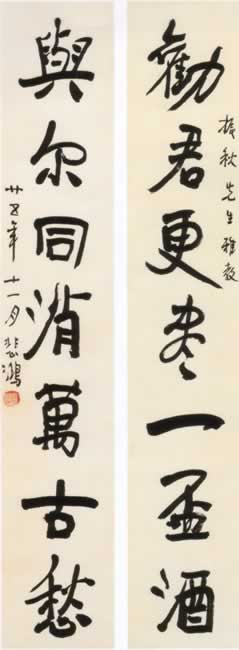 勸君更盡一盃酒
秋先生雅教
與尔同消萬古愁
廿五年十一月悲鴻